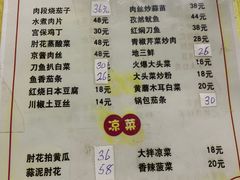 肉段烧茄子 36元
水煮肉片 48元
宫保鸡丁 30元
肘花蒸酸菜 48元
京酱肉丝 48元
刀鱼扒白菜 30元
鱼香茄条 26元
红烧日本豆腐 18元
川椒土豆丝 14元
肉丝炒蒜苗 38元
孜然鱿鱼 44元
红焖刀鱼 38元
青椒芹菜炒肉 28元
地三鲜 26
火爆大头菜 18元
大头菜炒粉 18元
黄蘑木耳白菜 20元
锅包茄条 30
凉菜
肘花拍黄瓜 36
蒜泥肘花 58
大拌凉菜 18元
香辣菠菜 20元